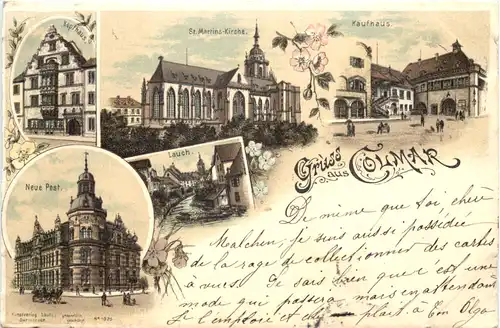 Kopfhaus.
St. Martins-Kirche.
Kaufhaus.
Lauch.
Neue Post.
Gruss
aus COLMAR
De même que toi chère
Malchen, je suis aussi possédée
de la rage de collectionner des cartes
à vues. Je sais bien que c'est une
mode qui passera mais en attendant
je l'emploie et cherche plait, à Ton Olga